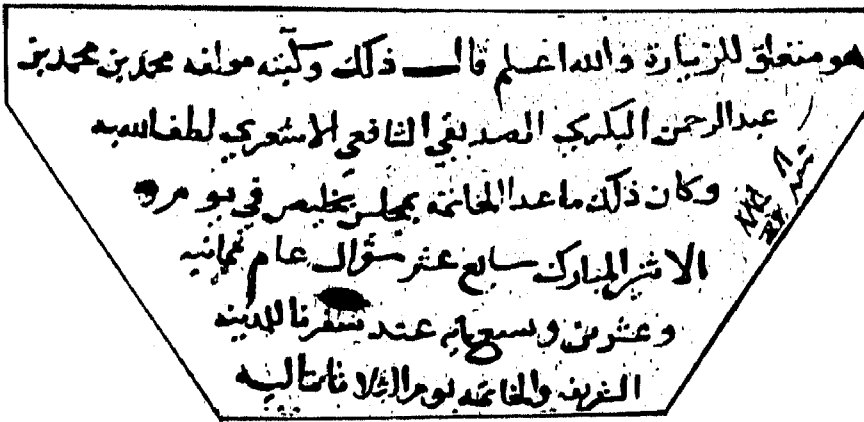 هو متعلق للزيارة والله اعلم قال ذلك وكتبه مولفه محمد بن محمد بن
عبد الرحمن البكري الصديقي الشافعي الاشعري لطف الله به
وكان ذلك ما عدا الخاتمة بمجلس بخليص في يوم
الاثنين المبارك سابع عشر شوال عام ثمانيه
وعشرين وتسعمايه عند سفرنا للمدينه
الشريفه والخاتمه يوم الثلاثا تاليه